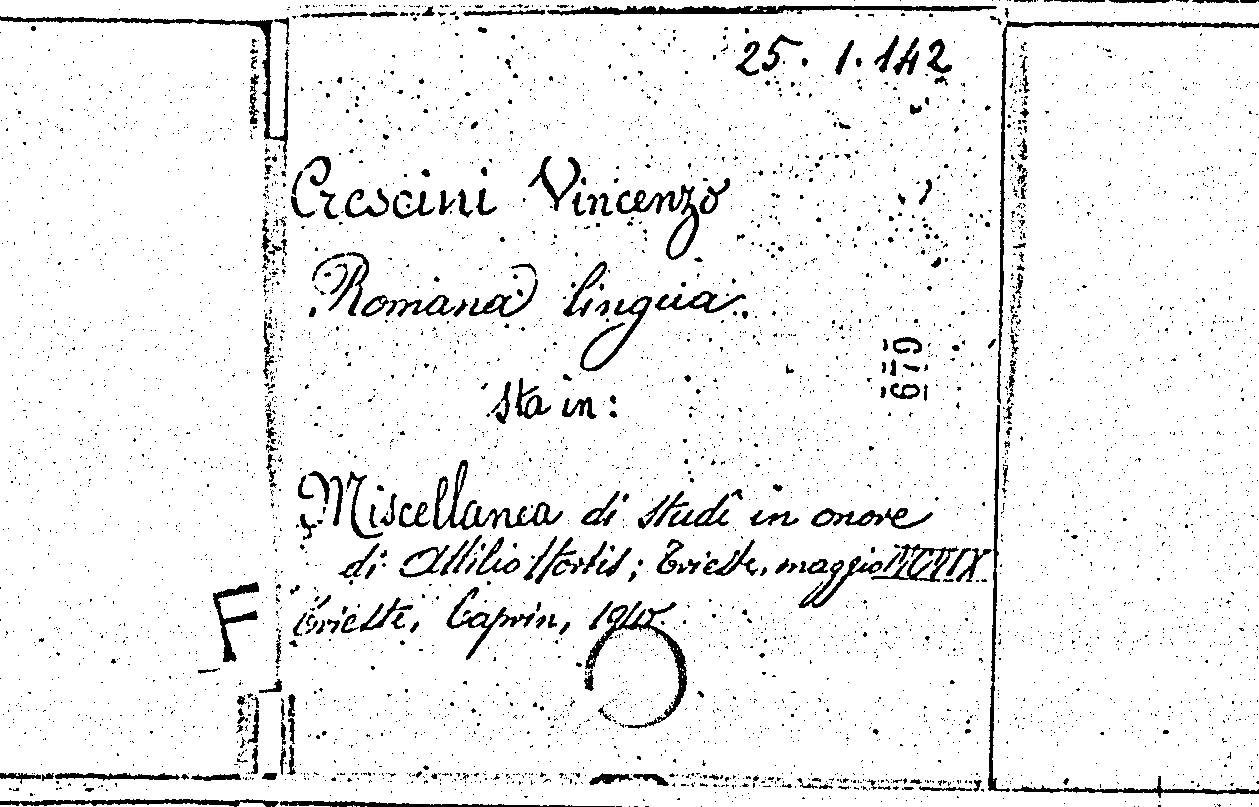 25. 1. 142
Crescini Vincenzo
Romana lingua.
679
sta in:
Miscellanea di studî in onore
di Attilio Hortis; Trieste, maggio MCMIX
F
Trieste, Caprin, 1910.